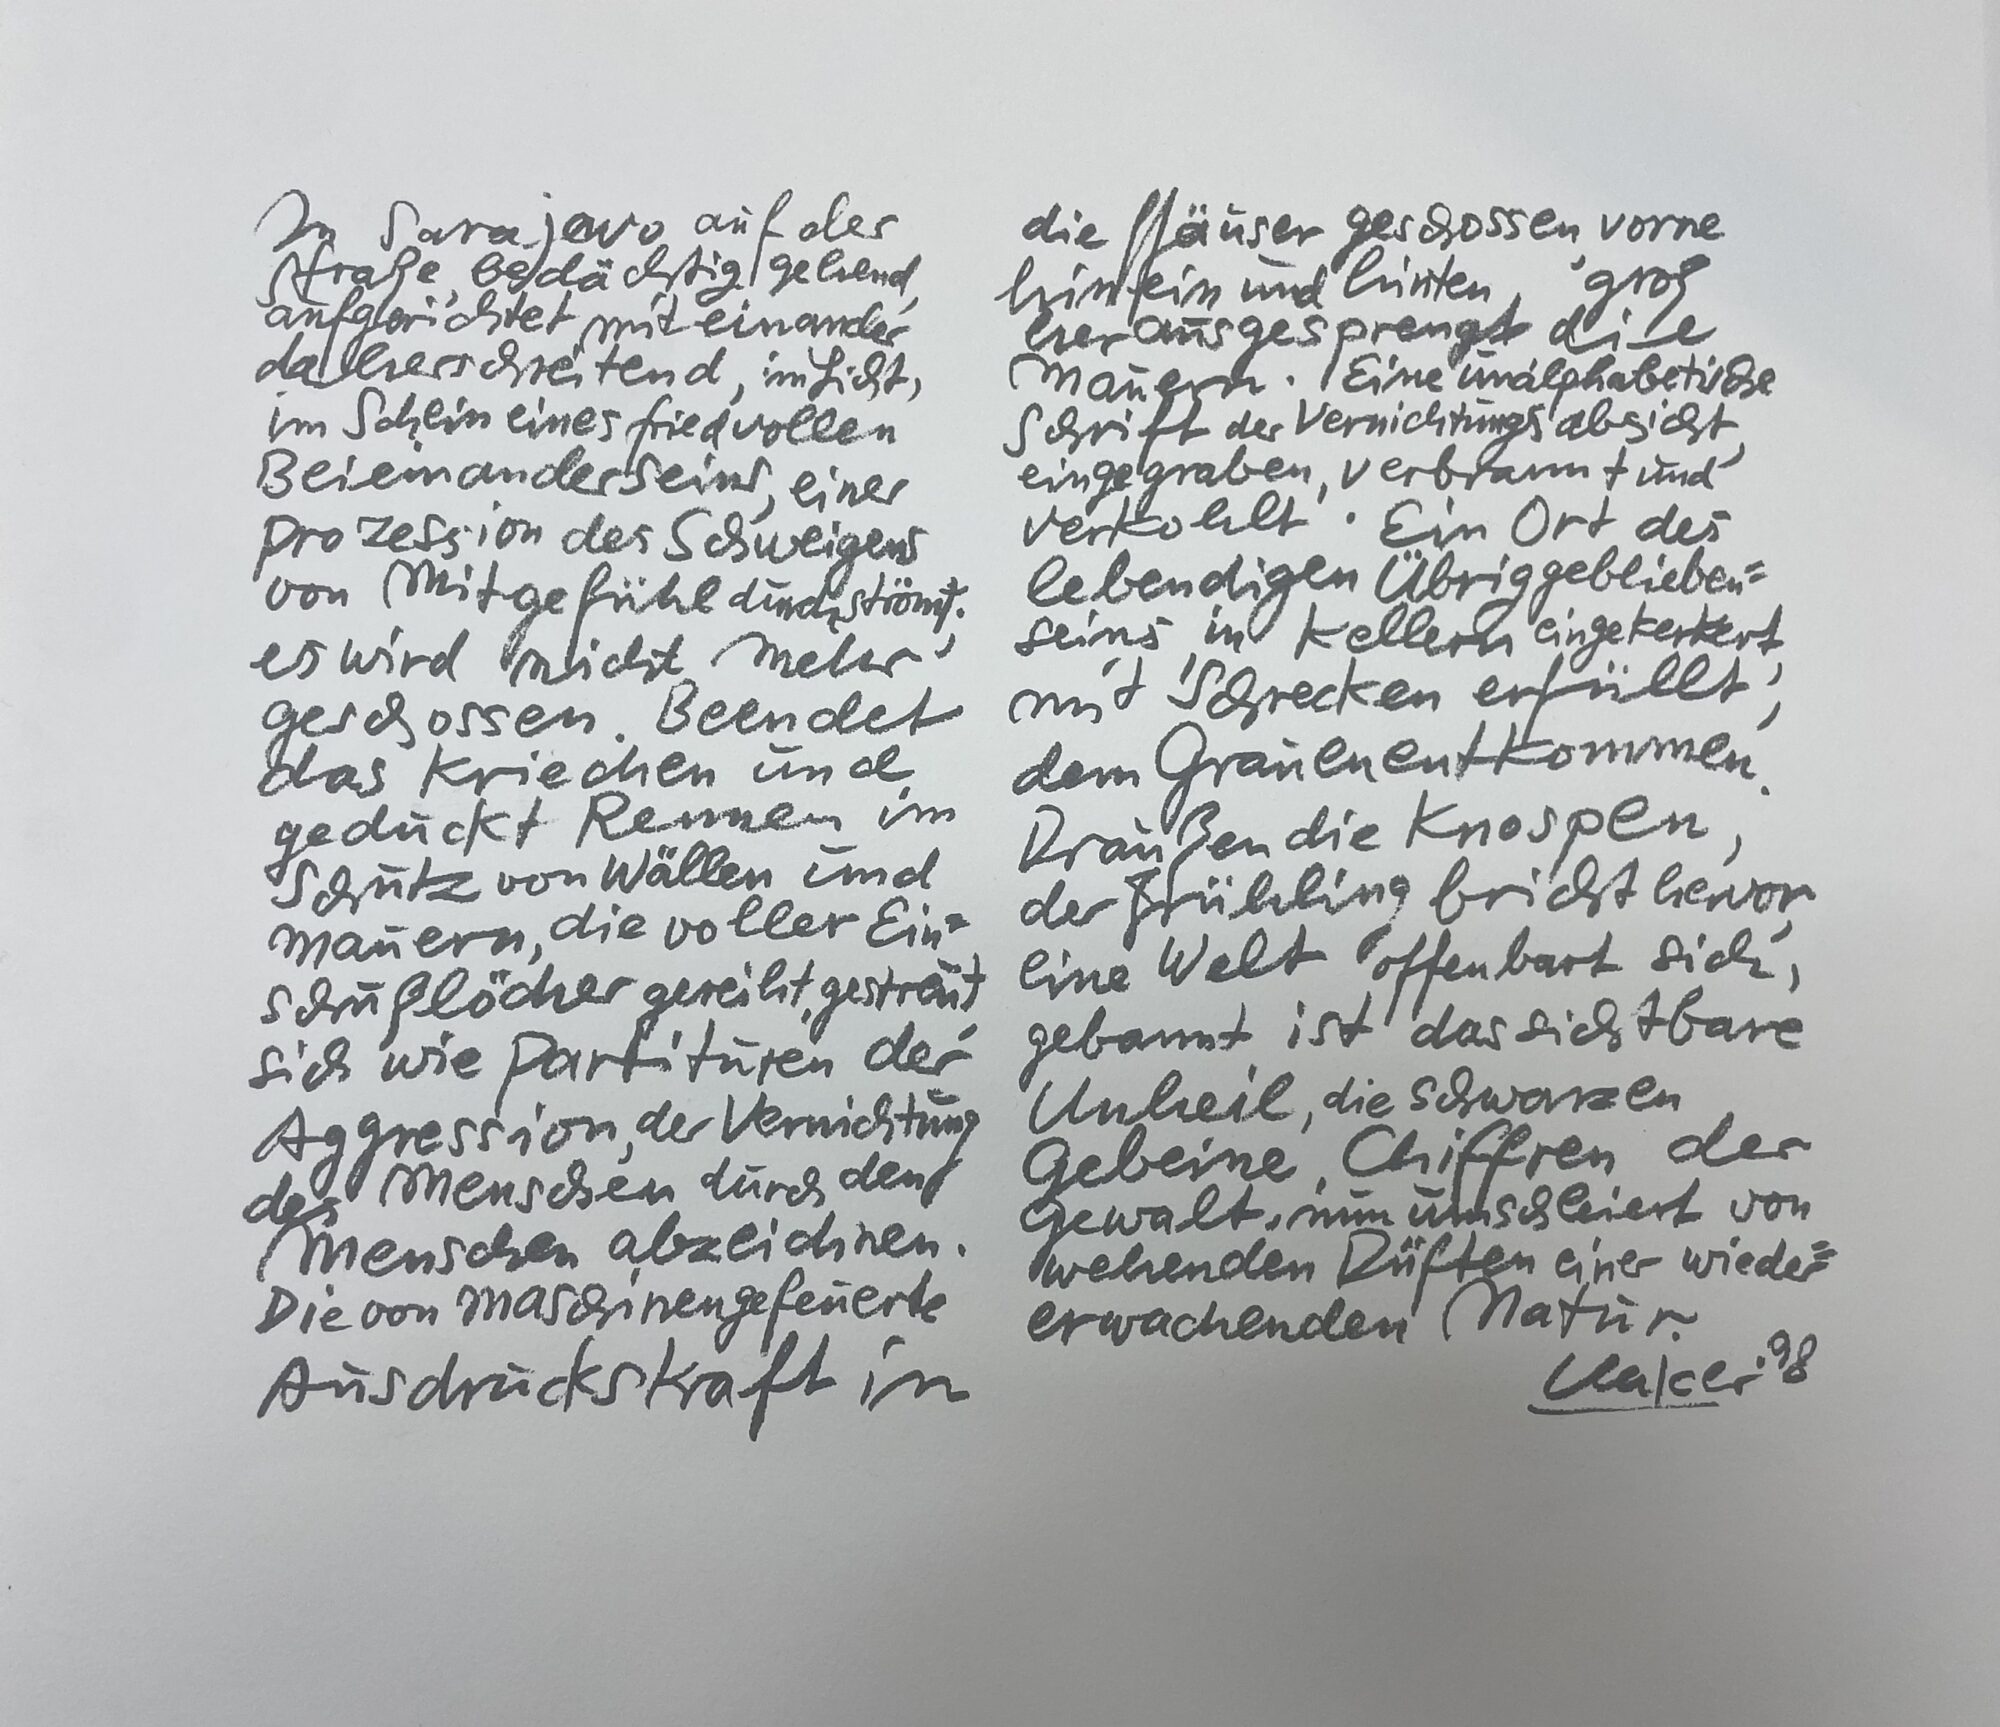 In Sarajewo auf der
Straße, bedächtig gehend,
aufgerichtet miteinander
daherschreitend, im Licht,
im Schein eines friedvollen
Beieinanderseins, einer
Prozession des Schweigens
von Mitgefühl durchströmt.
es wird nicht mehr
geschossen. Beendet
das Kriechen und
geduckt Rennen im
Schutz von Wällen und
Mauern, die voller Ein=
schußlöcher gereiht, gestreut
sich wie Partituren der
Aggression, der Vernichtung
des Menschen durch den
Menschen abzeichnen.
Die von Maschinengefeuerte
Ausdruckskraft in
die Häuser geschossen, vorne
hinein und hinten, groß
herausgesprengt die
Mauern. Eine unalphabetische
Schrift der Vernichtungsabsicht,
eingegraben, verbrannt und
verkohlt. Ein Ort des
lebendigen Übriggeblieben=
seins, in Kellern eingekerkert,
mit Schrecken erfüllt,
dem Grauen entkommen.
Draußen die Knospen,
der Frühling bricht hervor,
eine Welt offenbart sich,
gebannt ist das sichtbare
Unheil, die schwarzen
Gebeine, Chiffren der
Gewalt, nun umschleiert von
wehenden Düften einer wieder=
erwachenden Natur.
Uecker '98